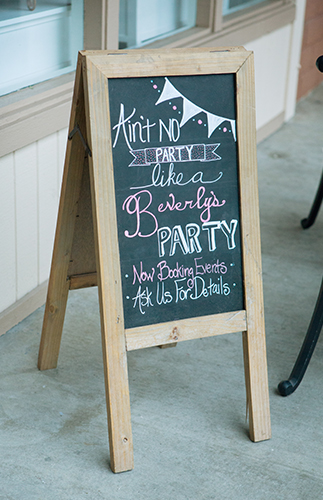 Ain't NO
PARTY
like a
Beverly's
PARTY
• Now Booking Events •
• Ask Us For Details •